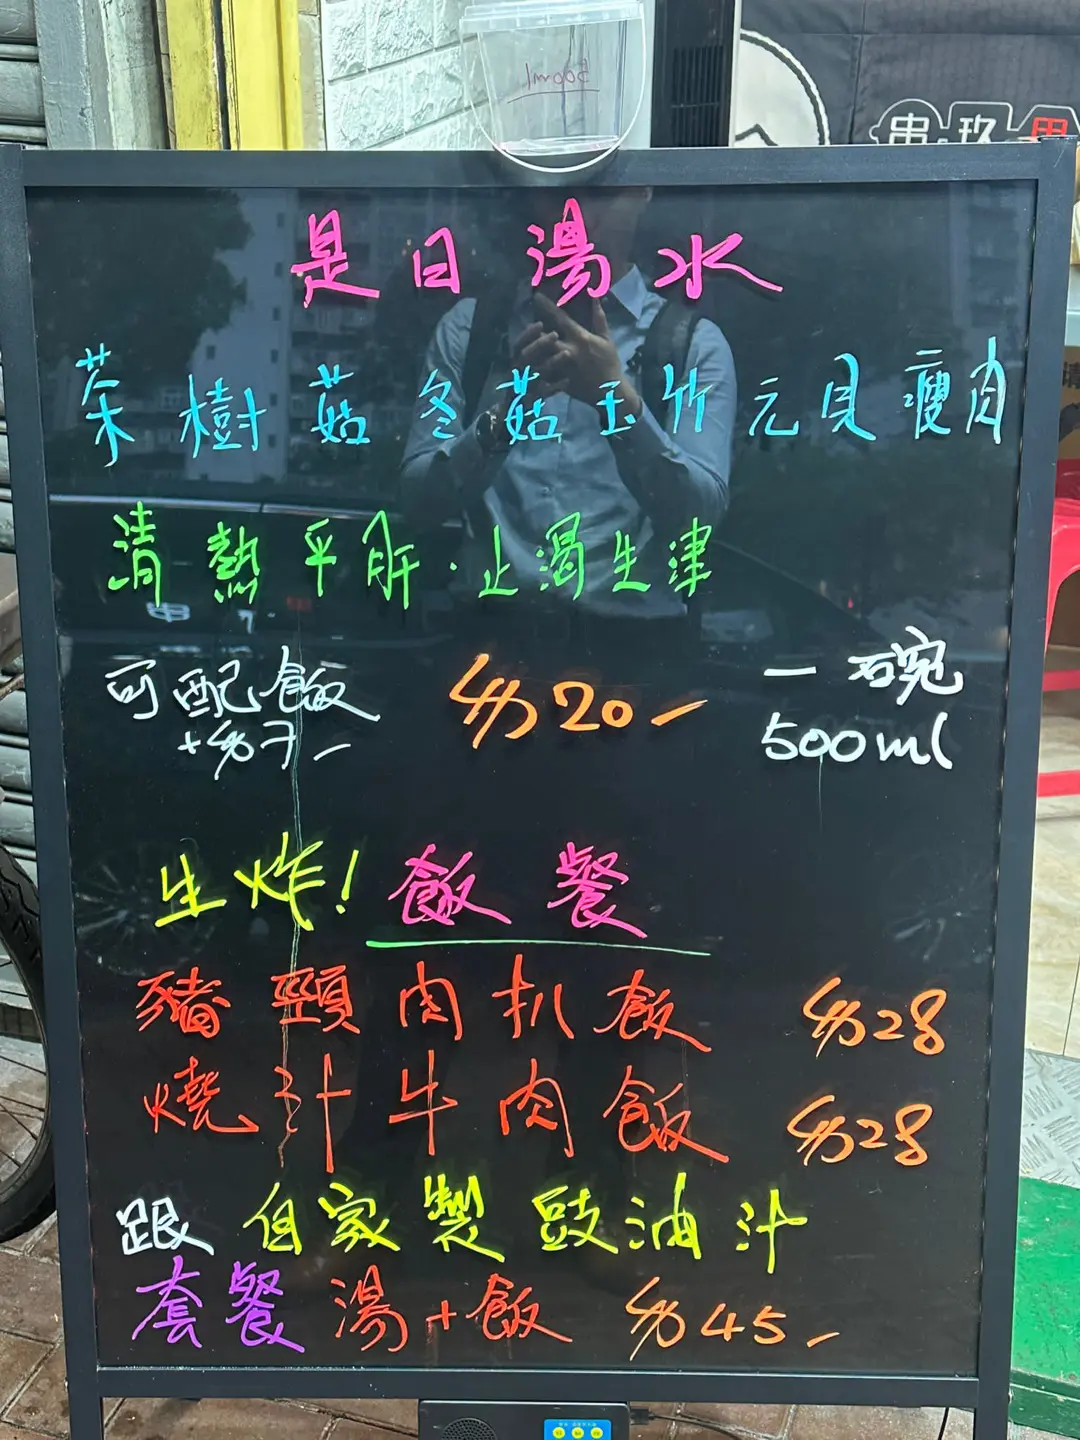 500ml
串.玖
是日湯水
茶樹菇冬菇玉竹元貝瘦肉
清熱平肝·止渴生津
可配飯 $20- 一碗
+$7- 500ml
生炸! 飯餐
豬頸肉扒飯 $28
燒汁牛肉飯 $28
跟自家製豉油汁
套餐湯+飯 $45-